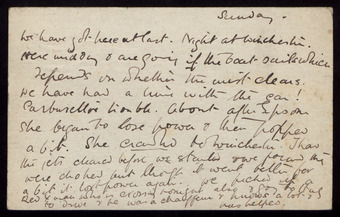 Sunday.
We have got here at last. Night at Winchester.
Here midday & are going if the boat sails which
depends on whether the mist clears.
We have had a time with the car!
Carburettor trouble. About after Epsom
She began to lose power & then popped
a bit. She crawled to Winchester. I had
the jets cleaned before we started & we found they
were choked but though it went better for
a bit it lost power again. We picked up
Red X man who is crossing tonight also &
to drive & he was a chauffeur & knows a lot & is
helpful.